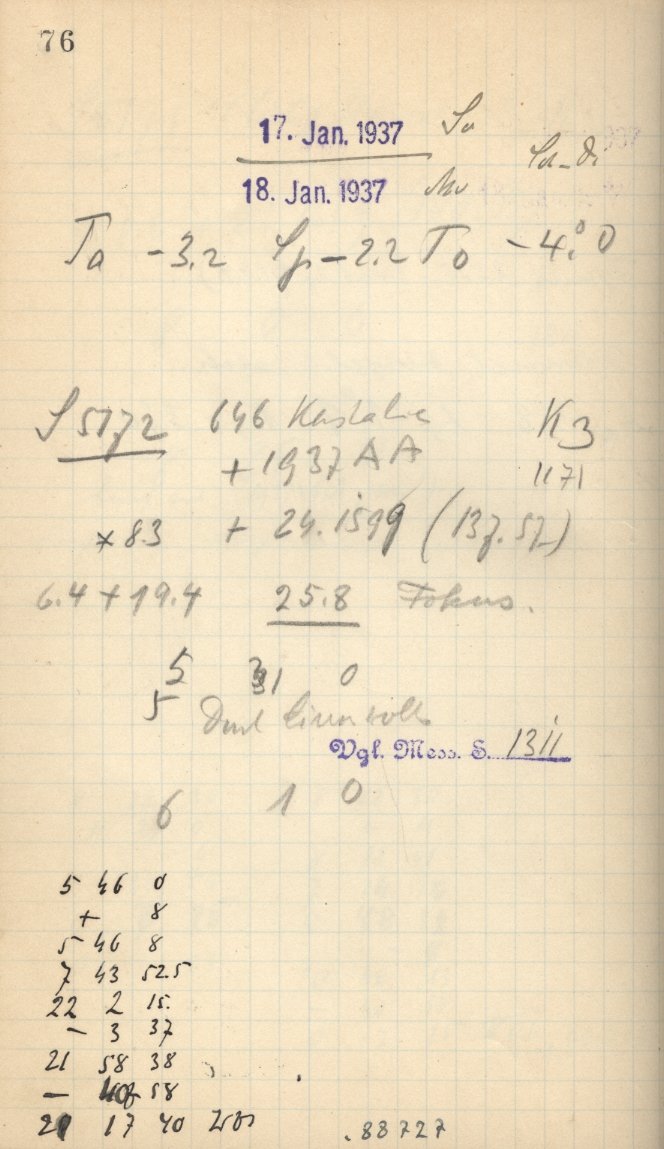 76
17. Jan. 1937 So
18. Jan. 1937 Mo
Ta -3.2 Sp -2.2 To -4.°0
S 5172 646 Kastalia K3
+ 1937 AA 1171
× 83 + 24.1599 (137.57)
6.4 + 19.4 25.8 Fokus.
5 31 0
5
Vgl. Mess. S. 1311
6 1 0
5 46 0
+ 8
5 46 8
7 43 52.5
22 2 15.
- 3 37
21 58 38
- 58
21 17 40
.88727